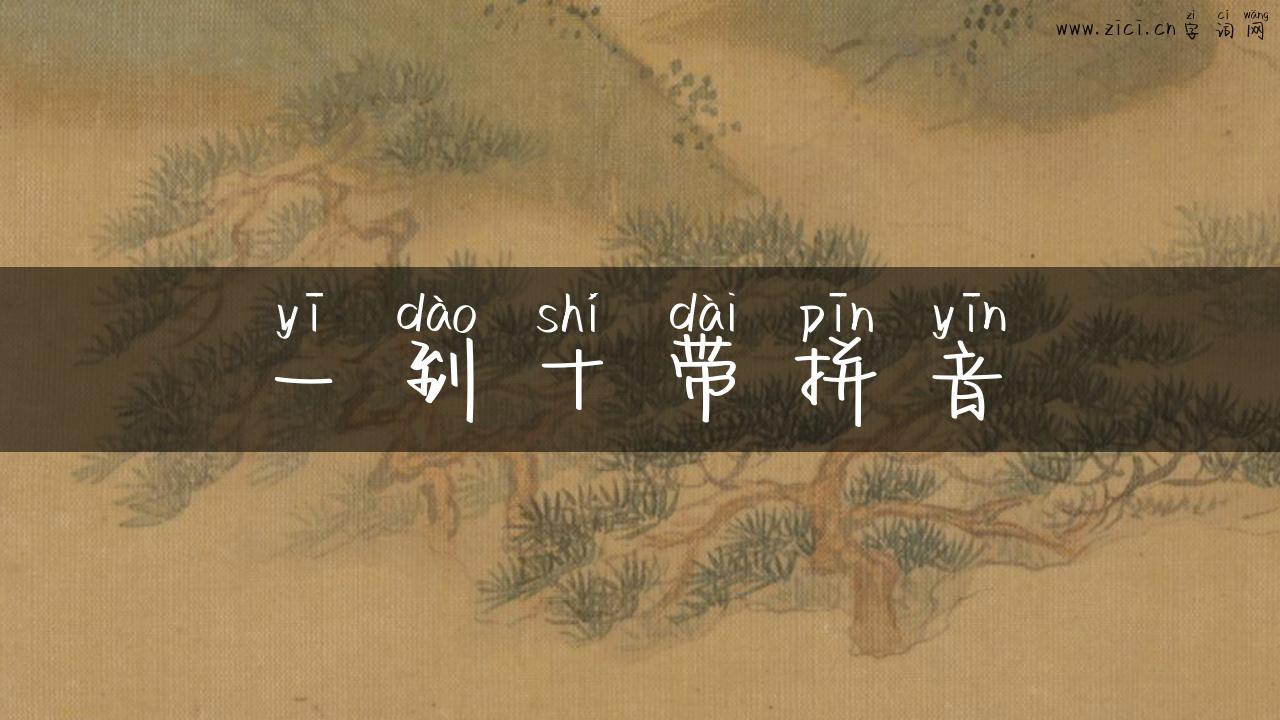 zì cí wǎng
www.zici.cn 字词网
yī dào shí dài pīn yīn
一到十带拼音